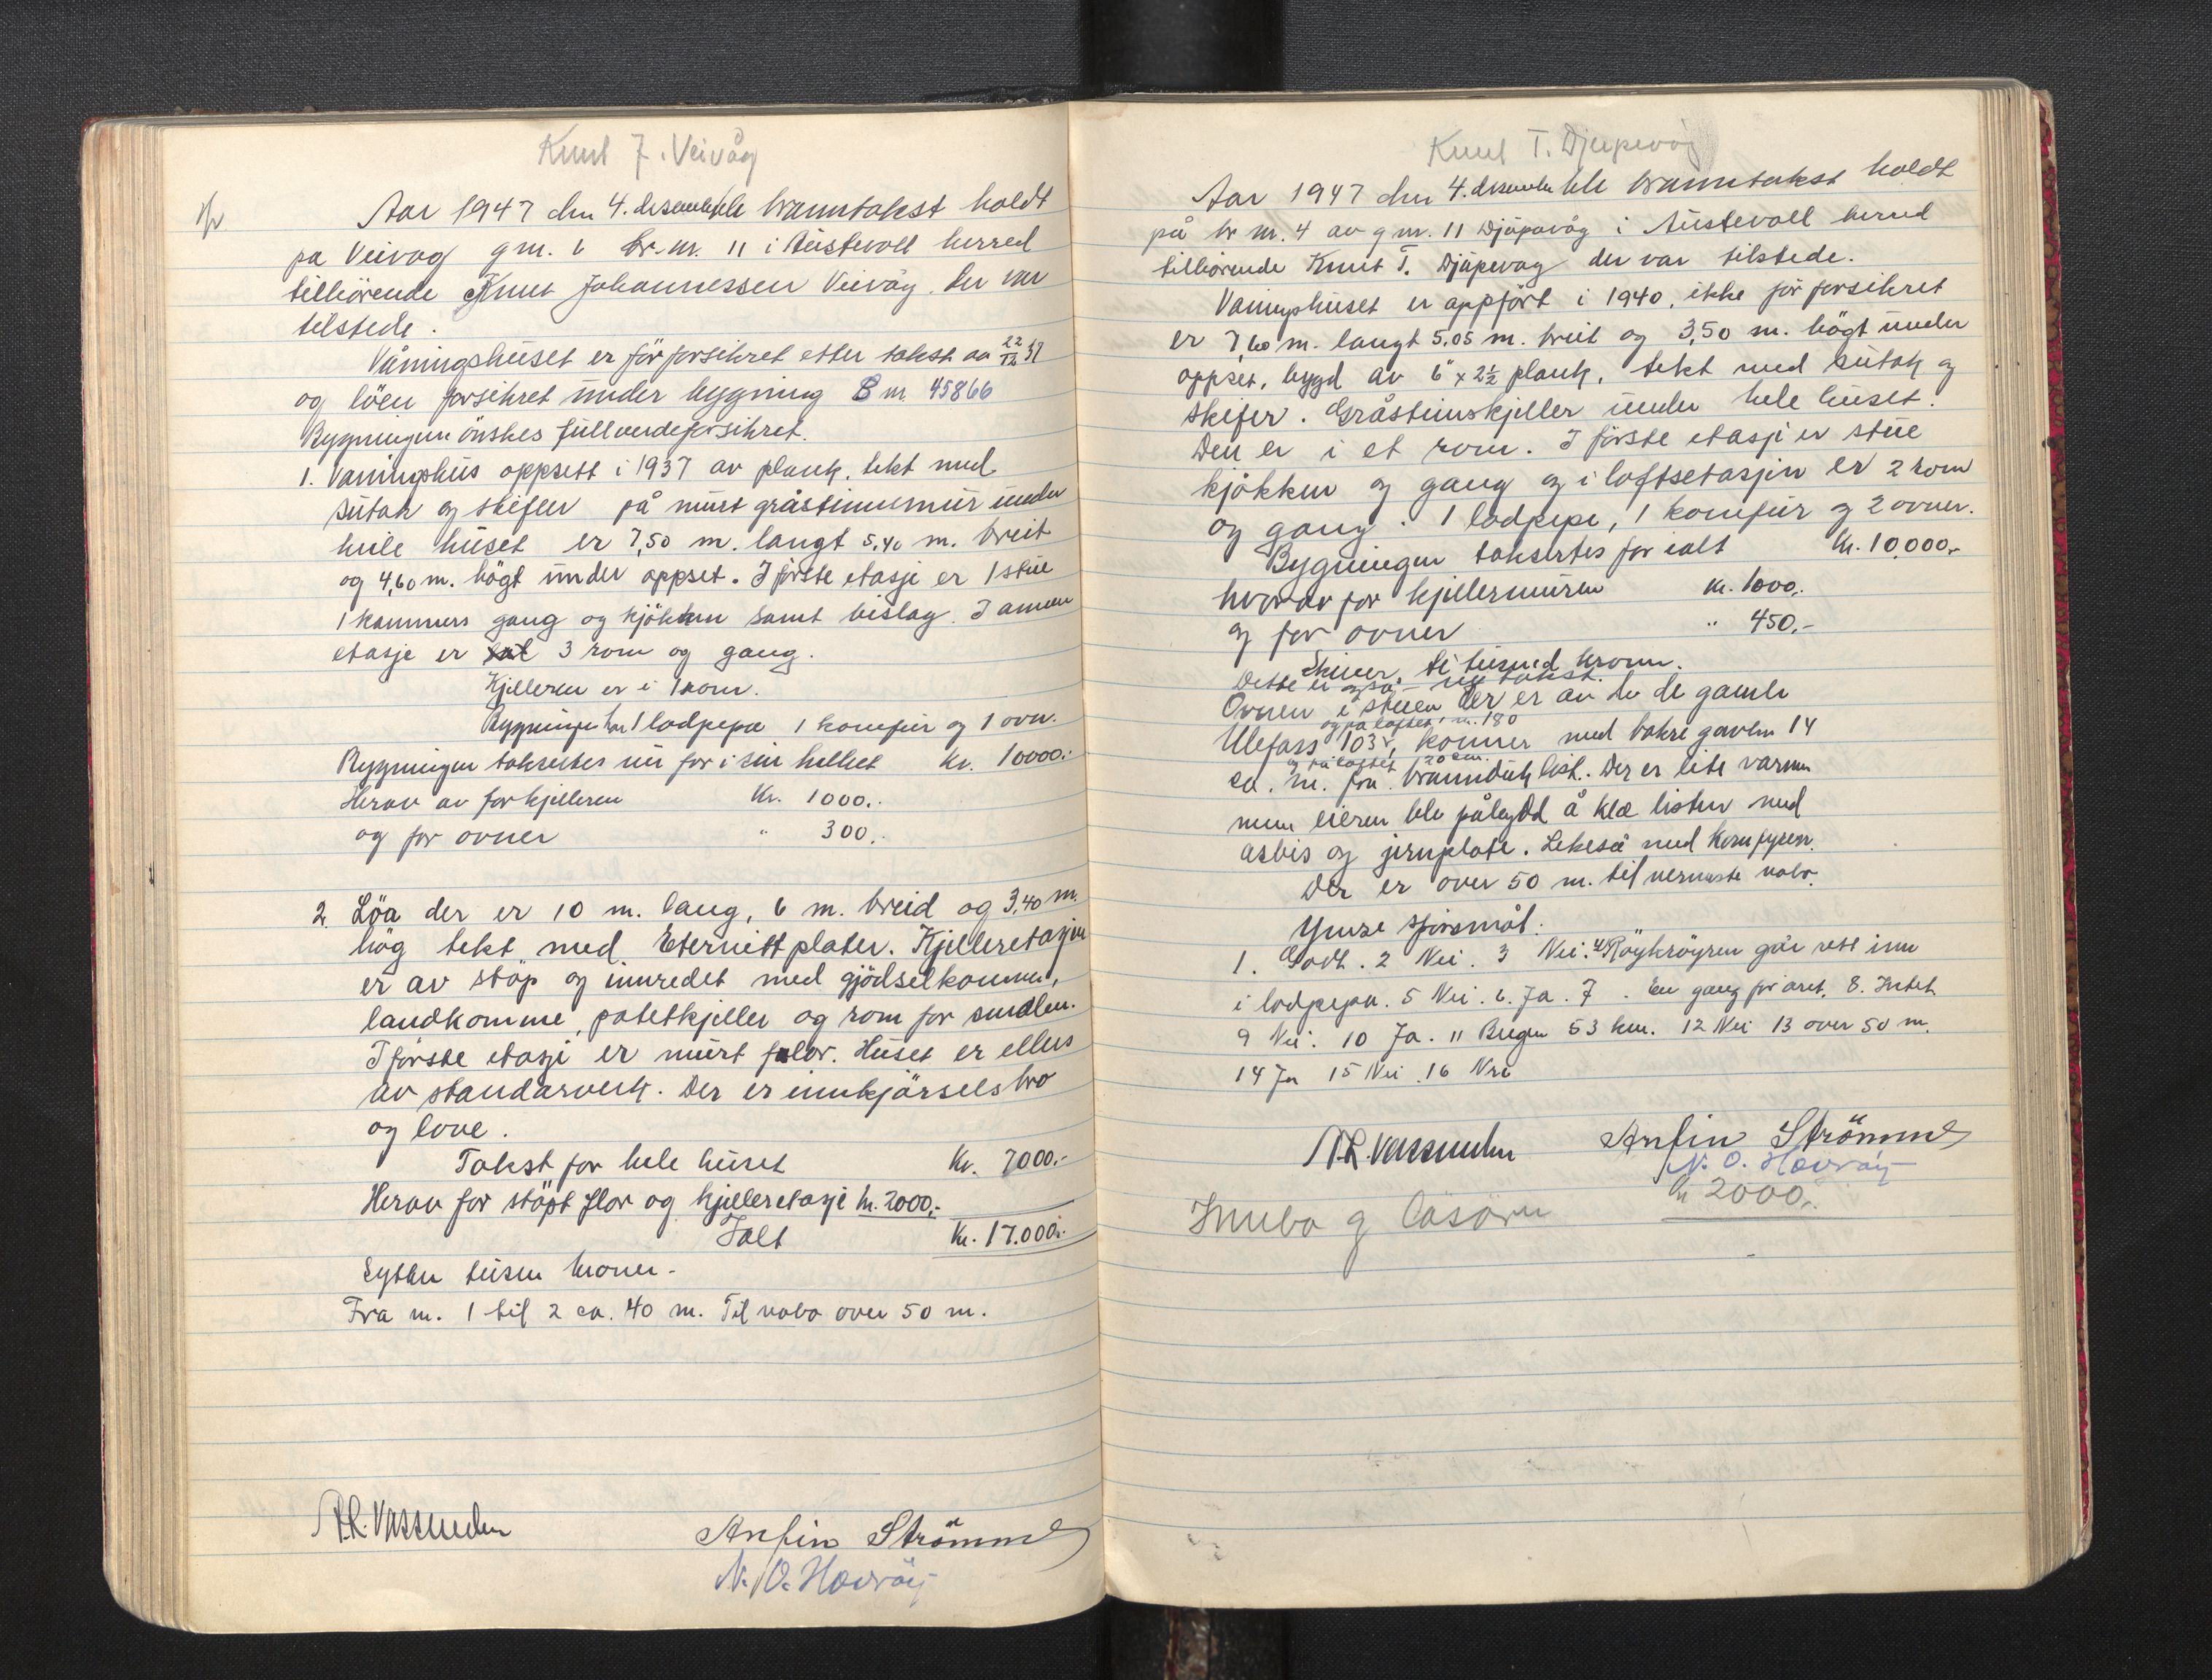 Knut J. Veivåg
Aar 1947 den 4. desember ble branntakst holdt
pa Veivag g nr. 6 br. nr. 11 i Austevoll herred
tilhörende Knut Johannessen Veivåg. der var
tilstede.
Våningshuset er för forsikret etter takst av 22/12 37
og löen forsikret under bygning B nr. 45866
Bygningen önskes fullverdeforsikret.
1. Vaningshus oppsett i 1937 av plank, tekt med
sutak og skifer på murt gråsteinsmur under
hele huset er 7,50 m. langt 5,40 m. breit
og 4,60 m. högt under oppset. I förste etasje er 1 stue
1 kammers gang og kjökken samt bislag. I annen
etasje er 3 rom og gang.
Kjelleren er i 1 rom.
Bygningen har 1 lodpepe 1 komfur og 1 ovn.
Bygningen takseres nu for i sin helhet Kr. 10000.-
Herav av for kjelleren Kr. 1000.-
og for ovner " 300.-
2. Löa der er 10 m. lang, 6 m. breid og 3,40 m.
hög tekt med Eternittplater. Kjelleretasjen
er av stöp og innredet med gjödselkomme,
landkomme, potetkjeller og rom for smalen.
I förste etasje er murt flor. Huset er ellers
av standarverk. Der er innkjörselsbro
og love.
Takst for hele huset Kr. 7000.-
Herav for stöpt flor og kjelleretasje kr. 2000,-
Ialt Kr. 17.000.-
Sytten tusen kroner -
Fra nr. 1 til 2 ca. 40 m. Til nabo over 50 m.
A.L. Vassenden Anfin Strömme
N. O. Hovråg
Knut T. Djupevåg
Aar 1947 den 4. desember ble branntakst holdt
på br nr. 4 av g nr. 11 Djupevåg i Austevoll herred
tilhörende Knut T. Djupevag der var tilstede.
Vaningshuset er oppfört i 1940, ikke för forsikret
er 7,60 m. langt 5.05 m. breit og 3,50 m. högt under
oppset, bygd av 6" x 2½ plank, tekt med sutak og
skifer. Gråsteinskjeller under hele huset.
Den er i et rom. I förste etasje er stue
kjökken og gang og i loftsetasjen er 2 rom
og gang. 1 lodpepe, 1 komfur og 2 ovner.
Bygningen taksertes for ialt Kr. 10.000,-
hvorav for kjellermuren kr. 1000,-
og for ovner " 450.-
Skiver, ti tusind kroner.
Dette er også - ny takst.
Ovnen i stuen der er av de gamle
og på loftet nr. 180
Ulefoss 103, kommer med bakre gavlen 14
og på loftet 20 cm.
cd. m. fra branndeklist. Der er lite varme
men eieren ble pålagd å klæ listen med
asbis og jernplate. Lekeså med komfyren.
Der er over 50 m. til nermeste nabo.
Ymse spörsmål:
1. Godt. 2 Nei. 3 Nei. 4 Röykröyren går rett inn
i lodpepa. 5 Nei. 6. Ja. 7. En gang for aret. 8. Intet
9 Nei. 10 Ja. 11 Bergen 53 km. 12 Nei 13 over 50 m.
14 Ja 15 Nei. 16 Nei
A.L. Vassenden Anfin Strömme
N. O. Hovråg
Innbo og lösöre kr 2000,-